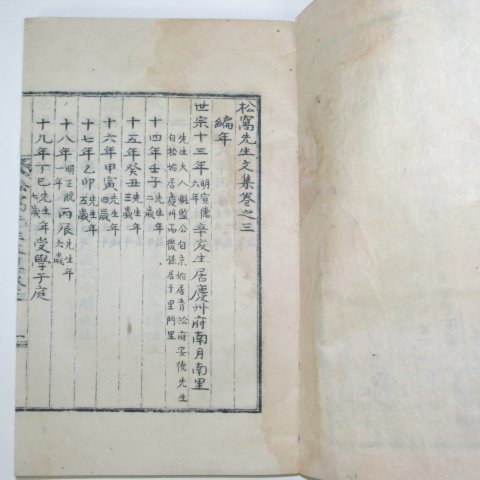 松窩先生文集卷之三
編年
世宗十三年明宣德六年辛亥生居慶州府南月南里
先生大人縣監公自京始居青松府安德先生
自松始居慶州而後移居千里門里
十四年壬子先生年二歲
十五年癸丑先生年三歲
十六年甲寅先生年四歲
十七年乙卯先生年五歲
十八年明正統元年丙辰先生年六歲
十九年丁巳先生年七歲受學于庭